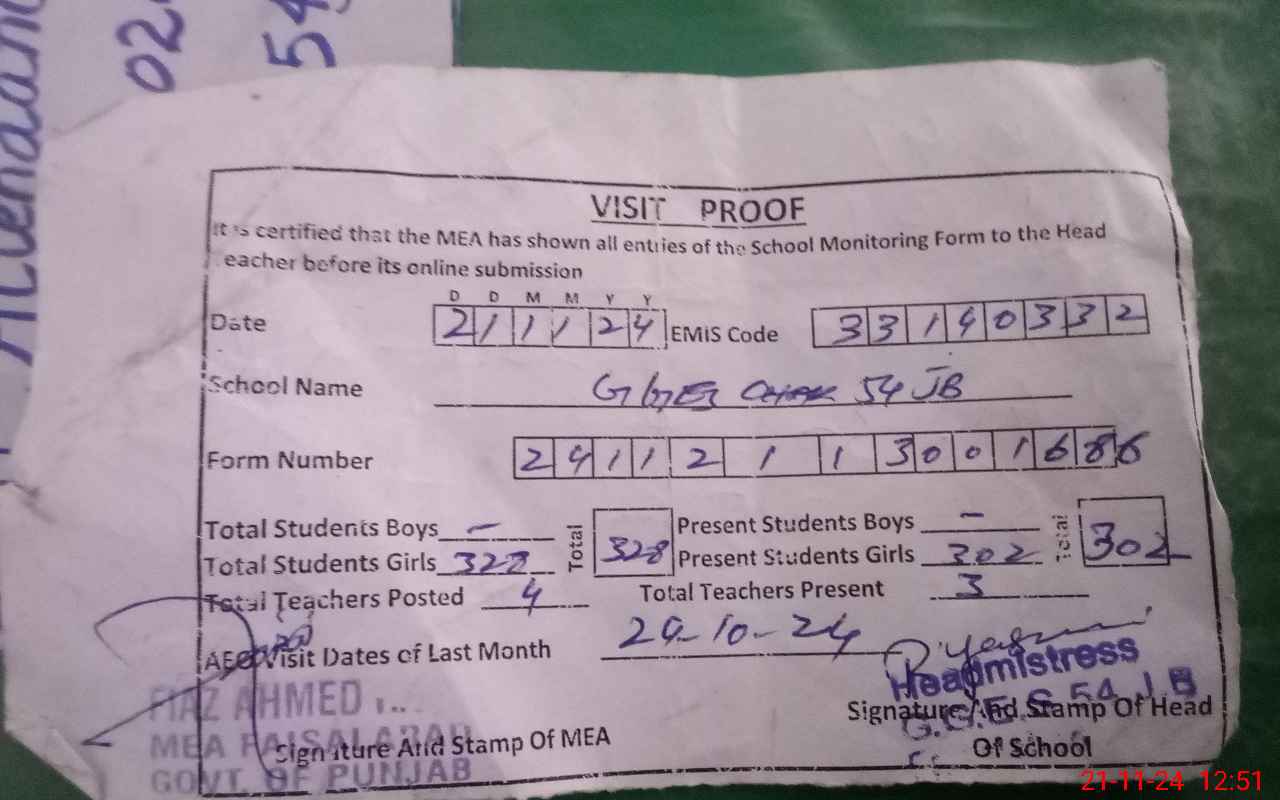 Attendance
02
54
VISIT PROOF
It is certified that the MEA has shown all entries of the School Monitoring Form to the Head
eacher before its online submission
D D M M Y Y
Date 2 1 1 1 2 4 EMIS Code 3 3 1 4 0 3 3 2
School Name GGES CHAK 54 JB
Form Number 2 4 1 1 2 1 1 3 0 0 1 6 8 6
Total Students Boys - Total 328 Present Students Boys - Total 302
Total Students Girls 328 Present Students Girls 302
Total Teachers Posted 4 Total Teachers Present 3
AEO Visit Dates of Last Month 24-10-24
Headmistress
FIAZ AHMED
G.G.E.S 54 J.B
Signature And Stamp Of Head
Of School
MEA FAISALABAD
Signature And Stamp Of MEA
GOVT. OF PUNJAB
21-11-24 12:51